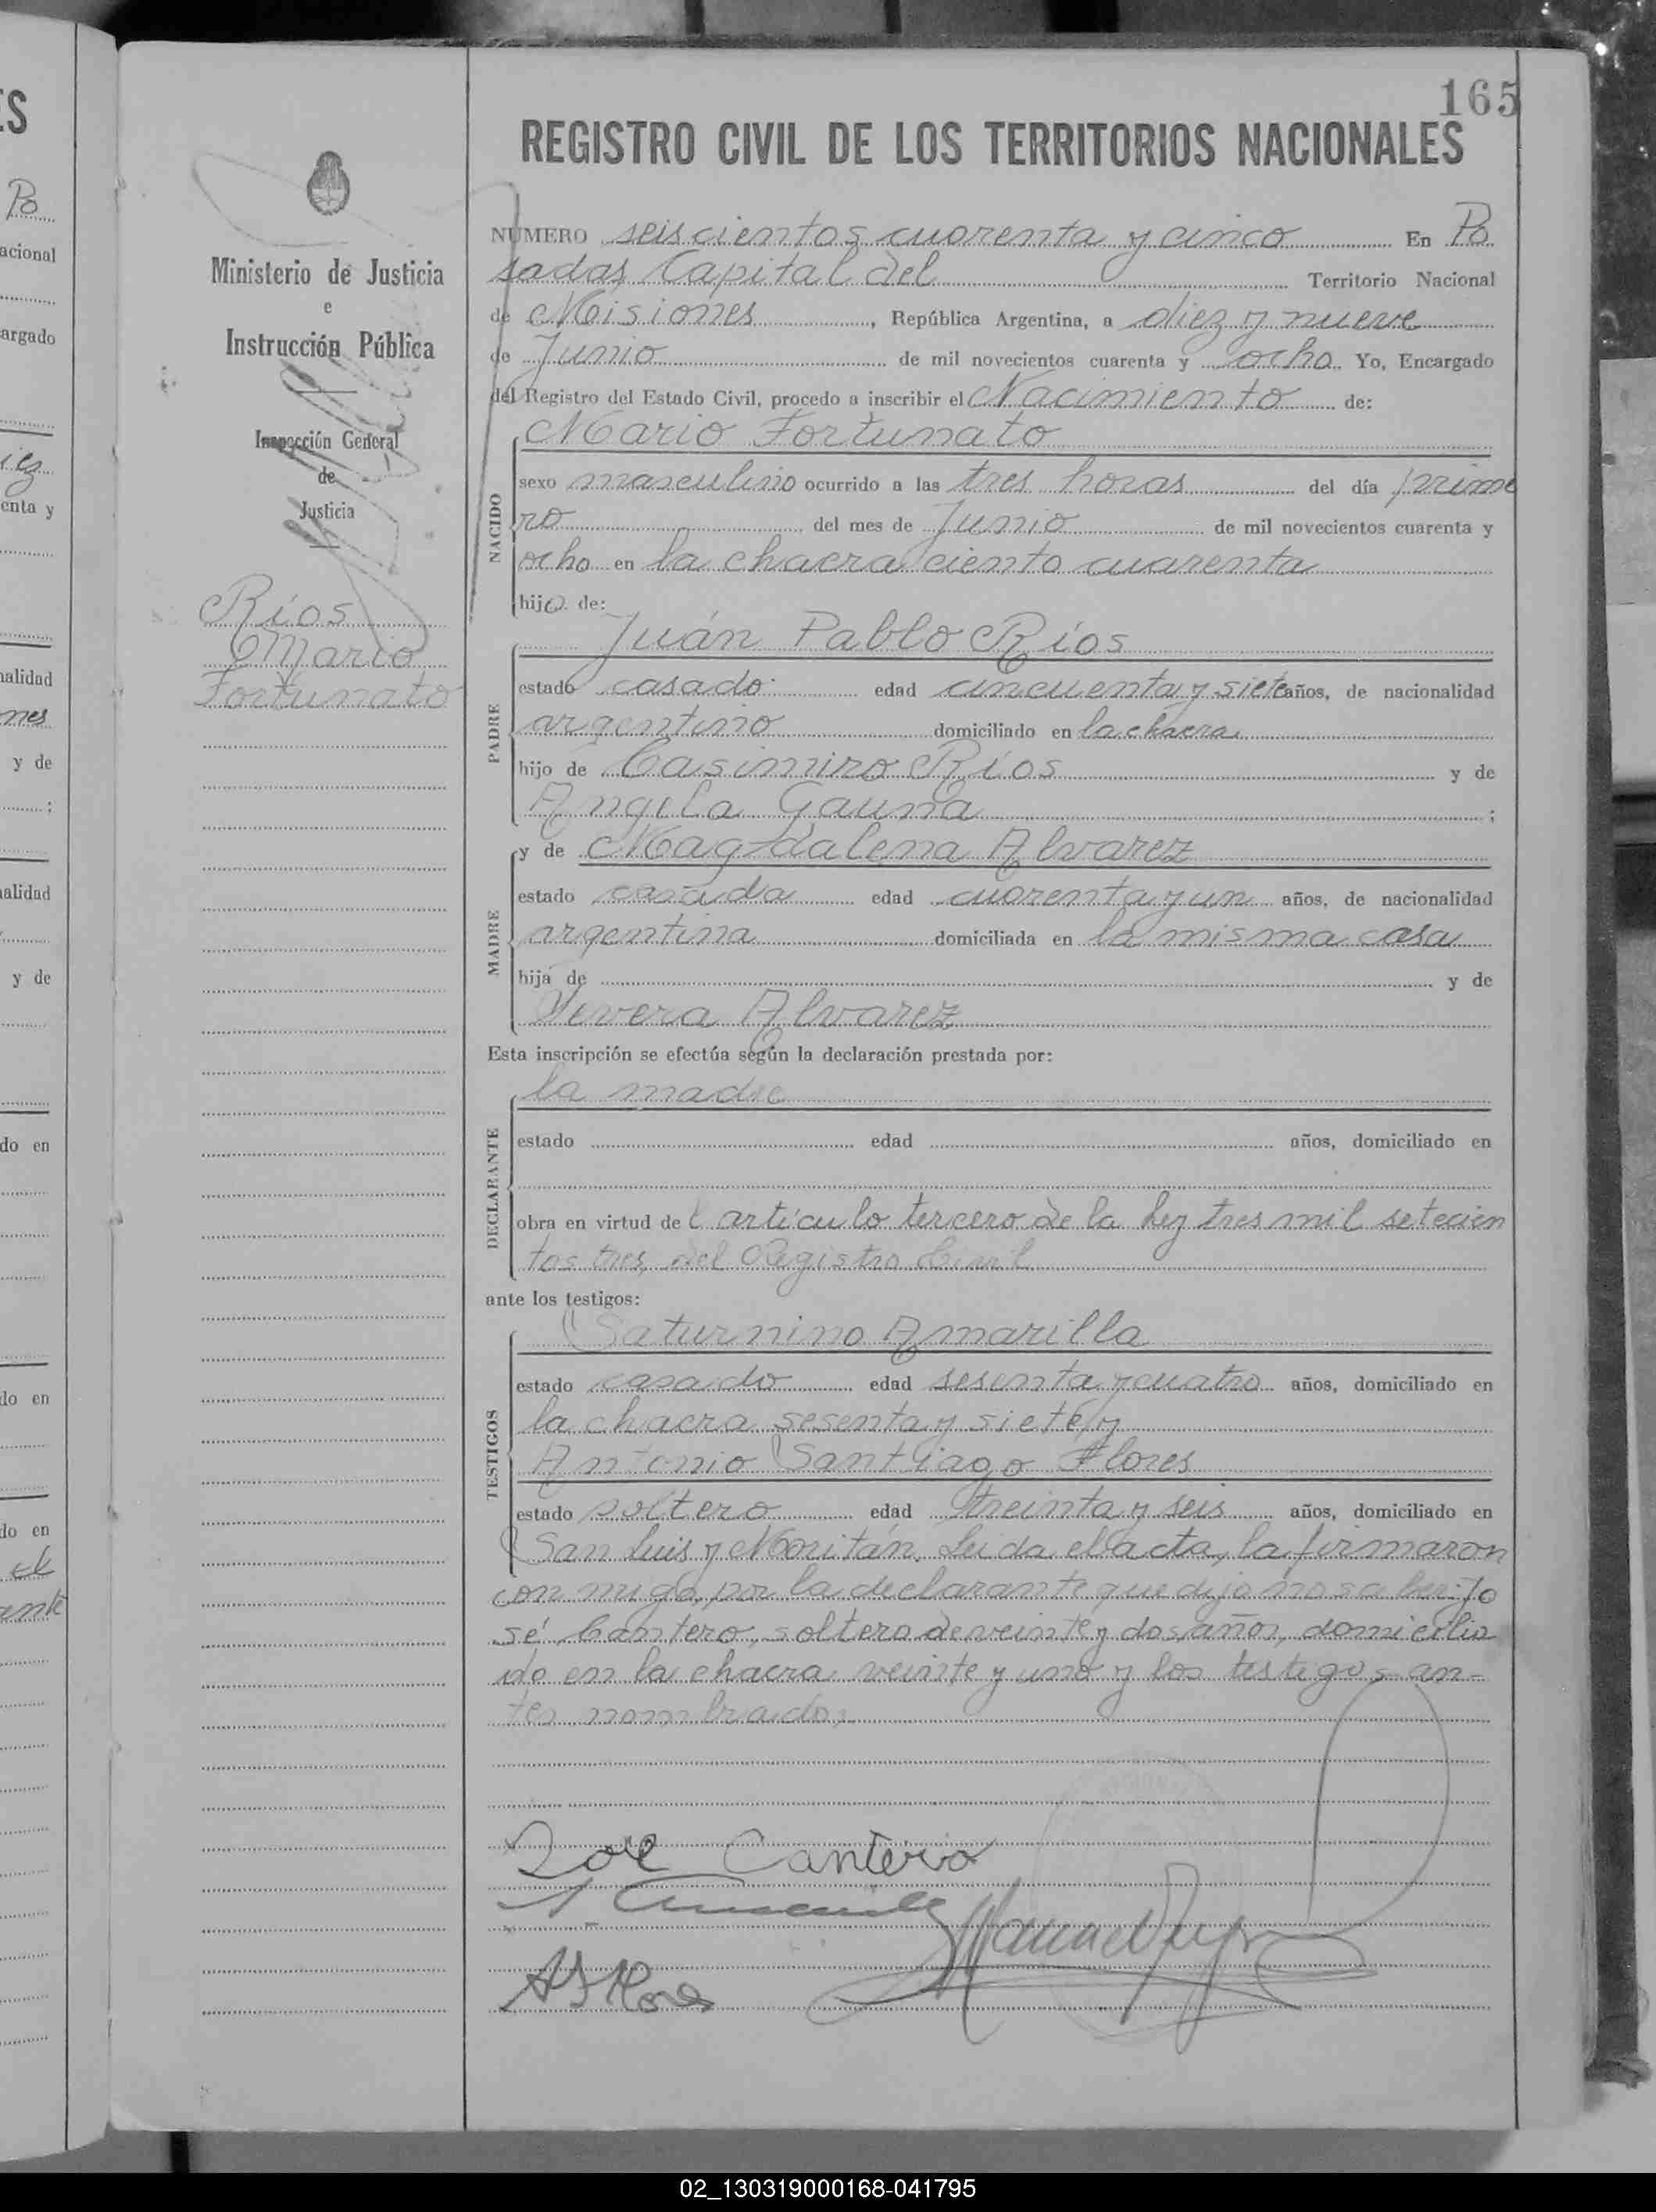 165
REGISTRO CIVIL DE LOS TERRITORIOS NACIONALES
Ministerio de Justicia
e
Instrucción Pública
Inspección General
de
Justicia
Ríos
Mario
Fortunato
NÚMERO seiscientos cuarenta y cinco En Po
sadas, Capital del Territorio Nacional
de Misiones, República Argentina, a diez y nueve
de Junio de mil novecientos cuarenta y ocho Yo, Encargado
del Registro del Estado Civil, procedo a inscribir el Nacimiento de:
NACIDO
Mario Fortunato
sexo masculino ocurrido a las tres horas del día prime
ro del mes de Junio de mil novecientos cuarenta y
ocho en la chacra ciento cuarenta
hijo de:
PADRE
Juán Pablo Ríos
estado casado edad cincuenta y siete años, de nacionalidad
argentino domiciliado en la chacra
hijo de Casimiro Ríos y de
Angela Gauna ;
MADRE
y de Magdalena Alvarez
estado casada edad cuarenta y un años, de nacionalidad
argentina domiciliada en la misma casa
hija de y de
Alvarez
Esta inscripción se efectúa según la declaración prestada por:
DECLARANTE
la madre
estado edad años, domiciliado en
obra en virtud del artículo tercero de la ley tres mil setecien
tos tres, del Registro Civil
ante los testigos:
TESTIGOS
Saturnino Amarilla
estado casado edad sesenta y cuatro años, domiciliado en
la chacra sesenta y siete y
Antonio Santiago Flores
estado soltero edad treinta y seis años, domiciliado en
San Luis y Moritán. Leida el acta, la firmaron
conmigo, por la declarante que dijo no saber: Jo
sé Cantero, soltero de veinte y dos años, domicilia
do en la chacra veinte y uno y los testigos an-
tes nombrados
José Canterio
A S Flores
02_130319000168-041795